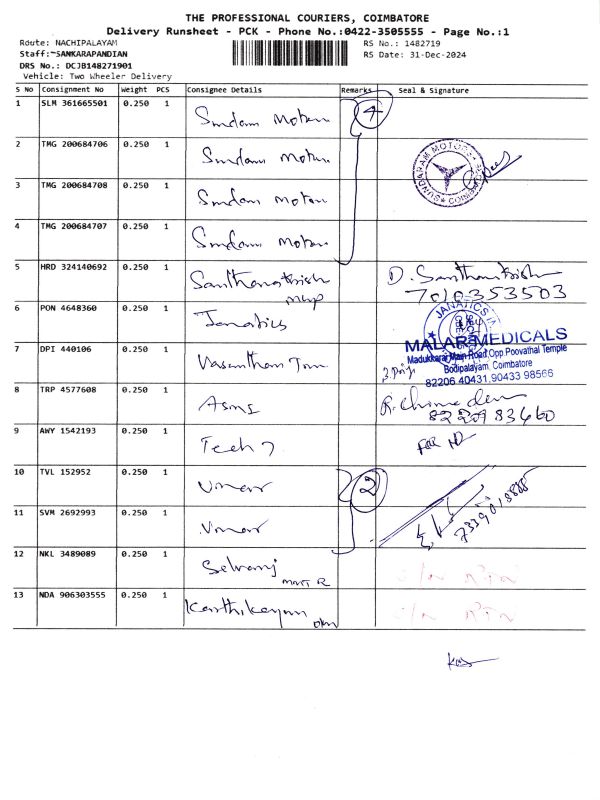 THE PROFESSIONAL COURIERS, COIMBATORE
Delivery Runsheet - PCK - Phone No.:0422-3505555 - Page No.:1
Route: NACHIPALAYAM
RS No.: 1482719
Staff: SANKARAPANDIAN
RS Date: 31-Dec-2024
DRS No.: DCJB148271901
Vehicle: Two Wheeler Delivery
S No Consignment No Weight PCS Consignee Details Remarks Seal & Signature
1 SLM 361665501 0.250 1 Sundam Motors 4
2 TMG 200684706 0.250 1 Sundam Motors
SUNDARAM MOTORS
3 TMG 200684708 0.250 1 Sundam Motors
4 TMG 200684707 0.250 1 Sundam Motors
5 HRD 324140692 0.250 1 Santhanakrish
D. Santhanakrish
7010353503
6 PON 4648360 0.250 1 Janatics
JANATICS
MALAR MEDICALS
7 DPI 440106 0.250 1 Vasantham
Madukkarai Main Road,Opp.Poovathal Temple
Bodipalayam, Coimbatore
82206 40431,90433 98566
8 TRP 4577608 0.250 1 Asms
9 AWY 1542193 0.250 1 Tech
10 TVL 152952 0.250 1 Umar 2
11 SVM 2692993 0.250 1 Umar
12 NKL 3489089 0.250 1 Selvaraj
13 NDA 906303555 0.250 1 Karthikeyan